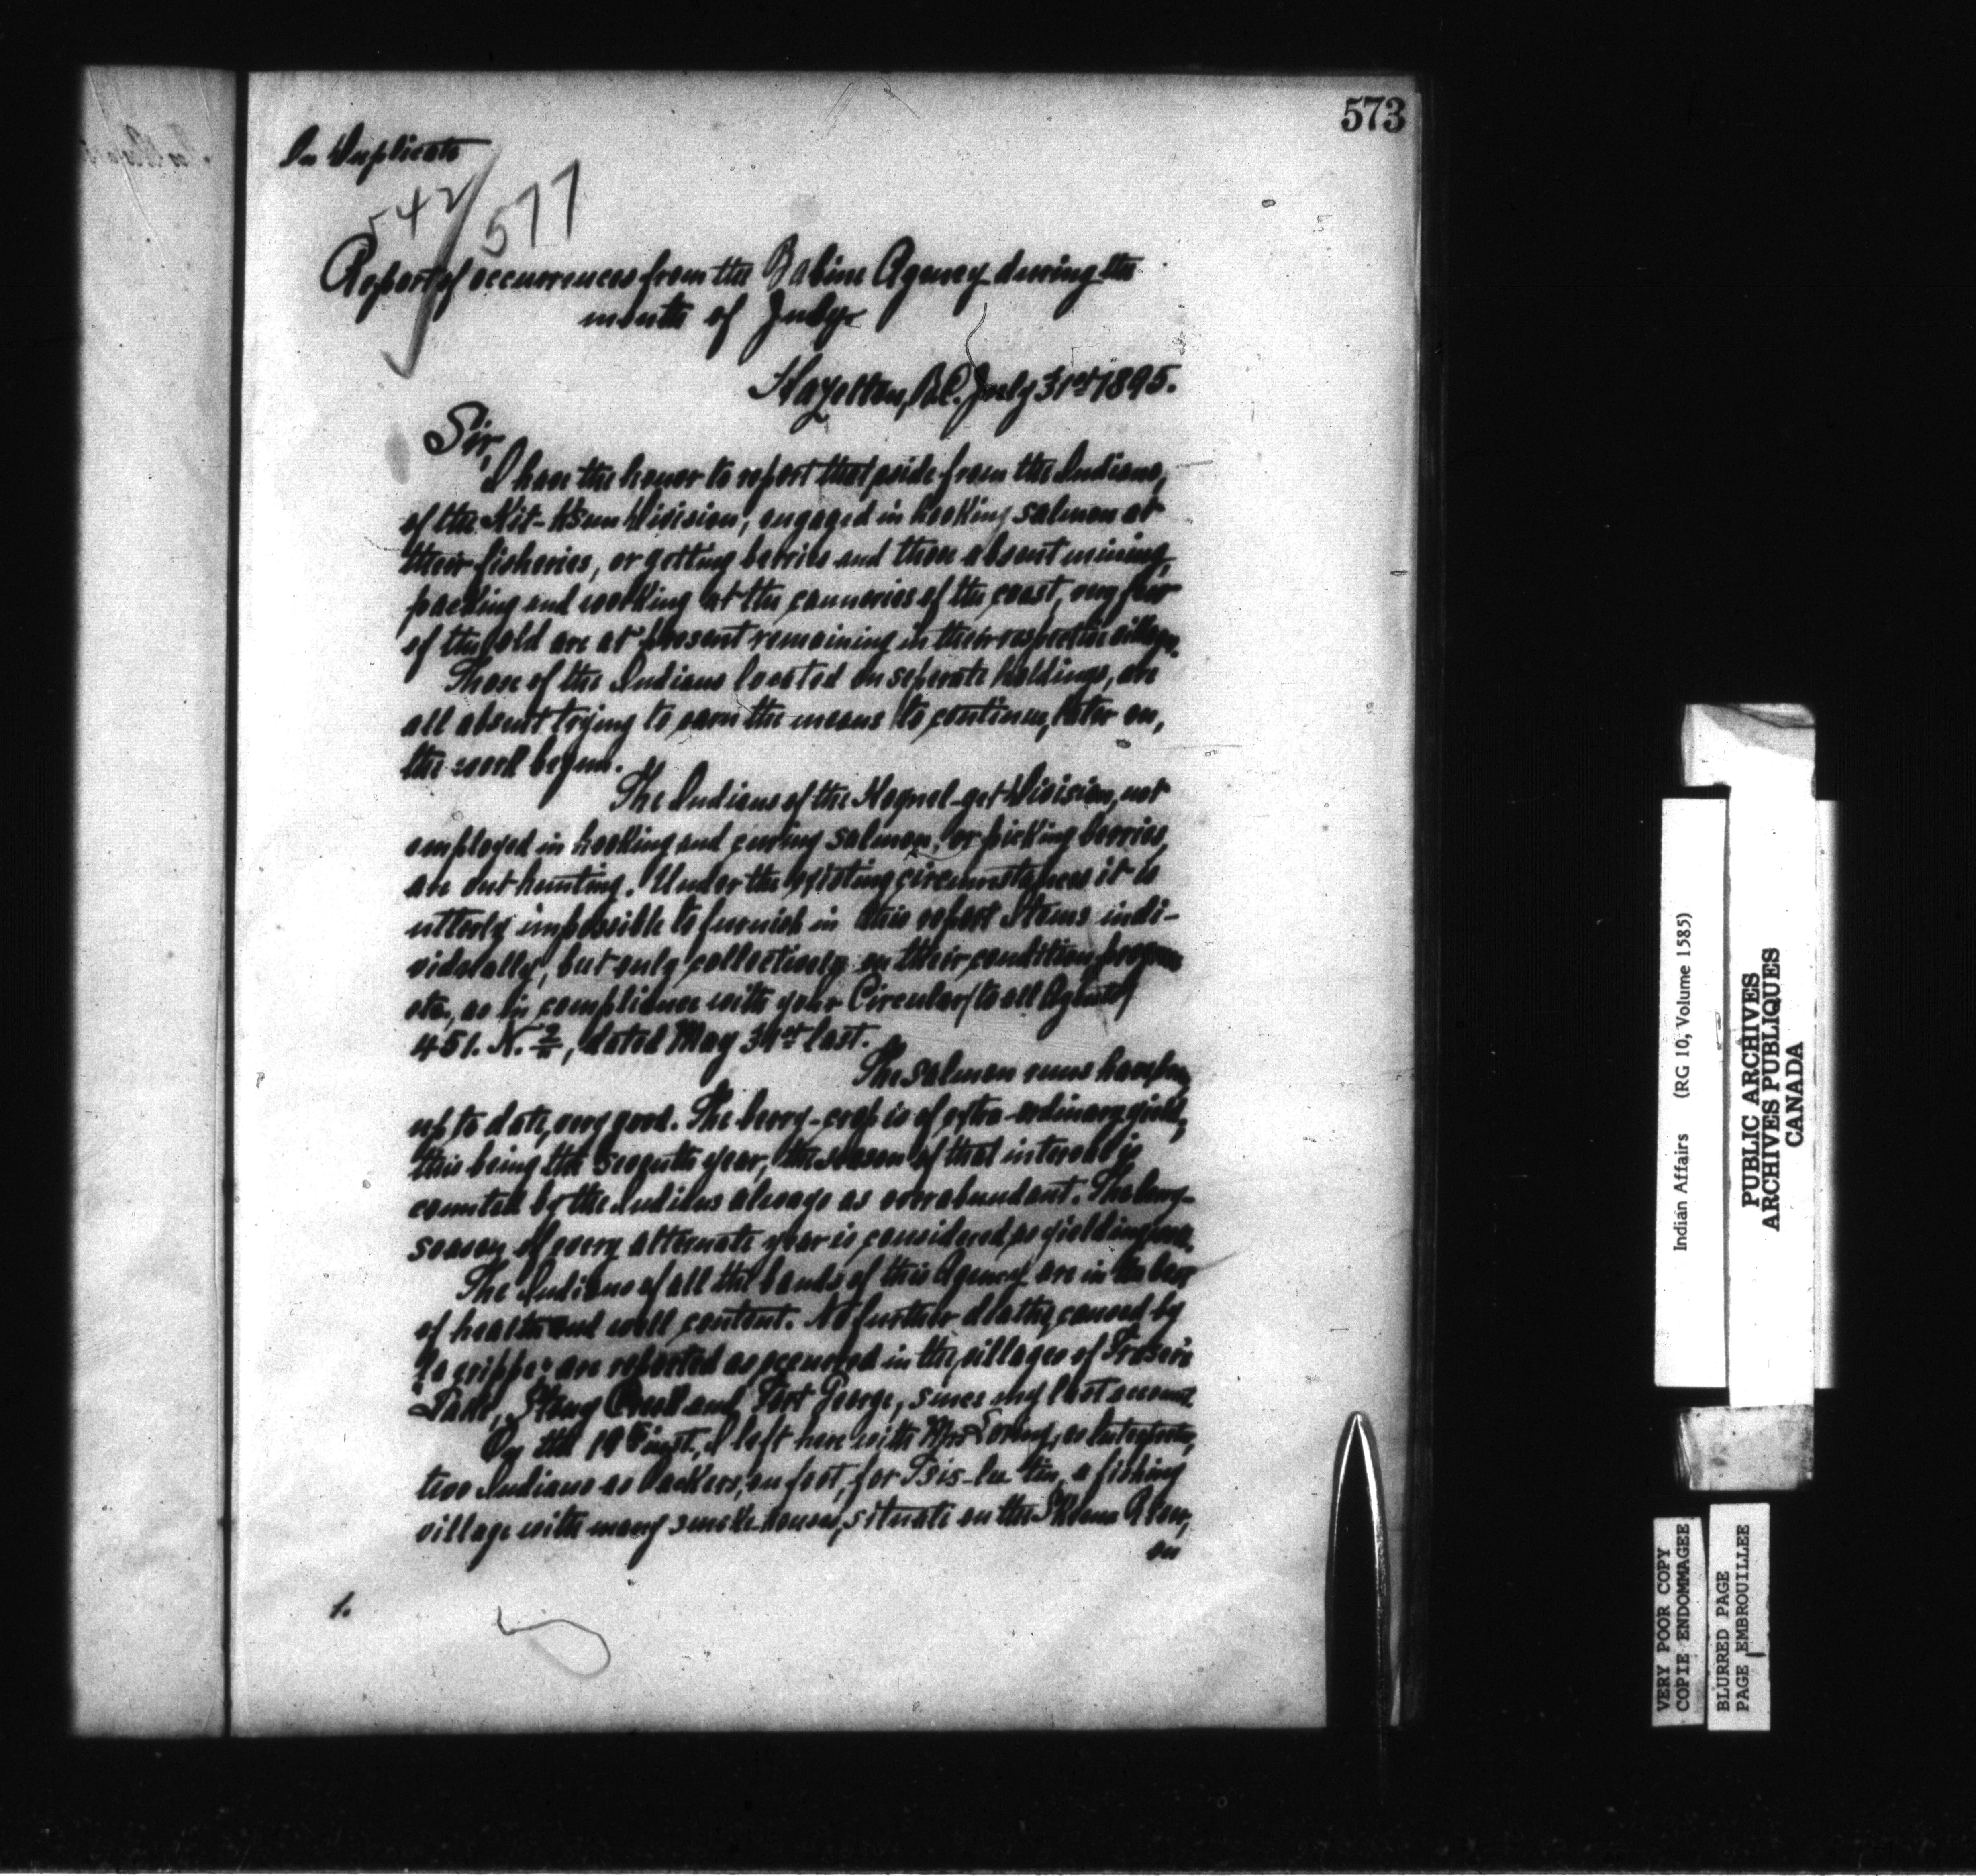 573
In Duplicate
542/577
Report of occurrences from the Babine Agency during the
month of July.
Hazelton, B.C. July 31st 1895.
Sir,
I have the honor to report that aside from the Indians,
of the Kit-ksun Division, engaged in hooking salmon at
their fisheries, or getting berries and those absent mining,
packing and working at the canneries of the coast, very few
of the old are at present remaining in their respective villages.
Those of the Indians located on seperate holdings, are
all absent trying to earn the means to continue, later on,
the work begun.
The Indians of the Hoquel-get Division, not
employed in hooking and curing salmon, or picking berries,
are out hunting. Under the existing circumstances it is
utterly impossible to furnish in this report Items indi-
vidually, but only collectively on their condition progress
etc., as in compliance with your Circular (to all Agents)
451. N. 2/11, dated May 31st last.
The salmon runs have been
up to date, very good. The berry-crop is of extra-ordinary yield,
this being the seventh year, the season of that interval is
counted by the Indians always as overabundant. The
season of every alternate year is considered as yielding
The Indians of all the bands of this Agency are in the best
of health and well content. No further deaths, caused by
"la grippe" are reported as occurred in the villages of Fraser's
Lake, Stony Creek and Fort George, since my last account.
On the 19th inst., I left here with Mrs Loring, as Interpreter,
two Indians as packers, on foot, for a fishing
village with many smoke-houses, situate on the Skeena River,
on
1.
Indian Affairs (RG 10, Volume 1585)
PUBLIC ARCHIVES
ARCHIVES PUBLIQUES
CANADA
VERY POOR COPY
COPIE ENDOMMAGEE
BLURRED PAGE
PAGE EMBROUILLEE